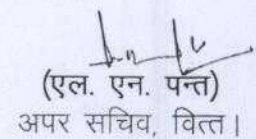 (एल. एन. पन्त)
अपर सचिव, वित्त।